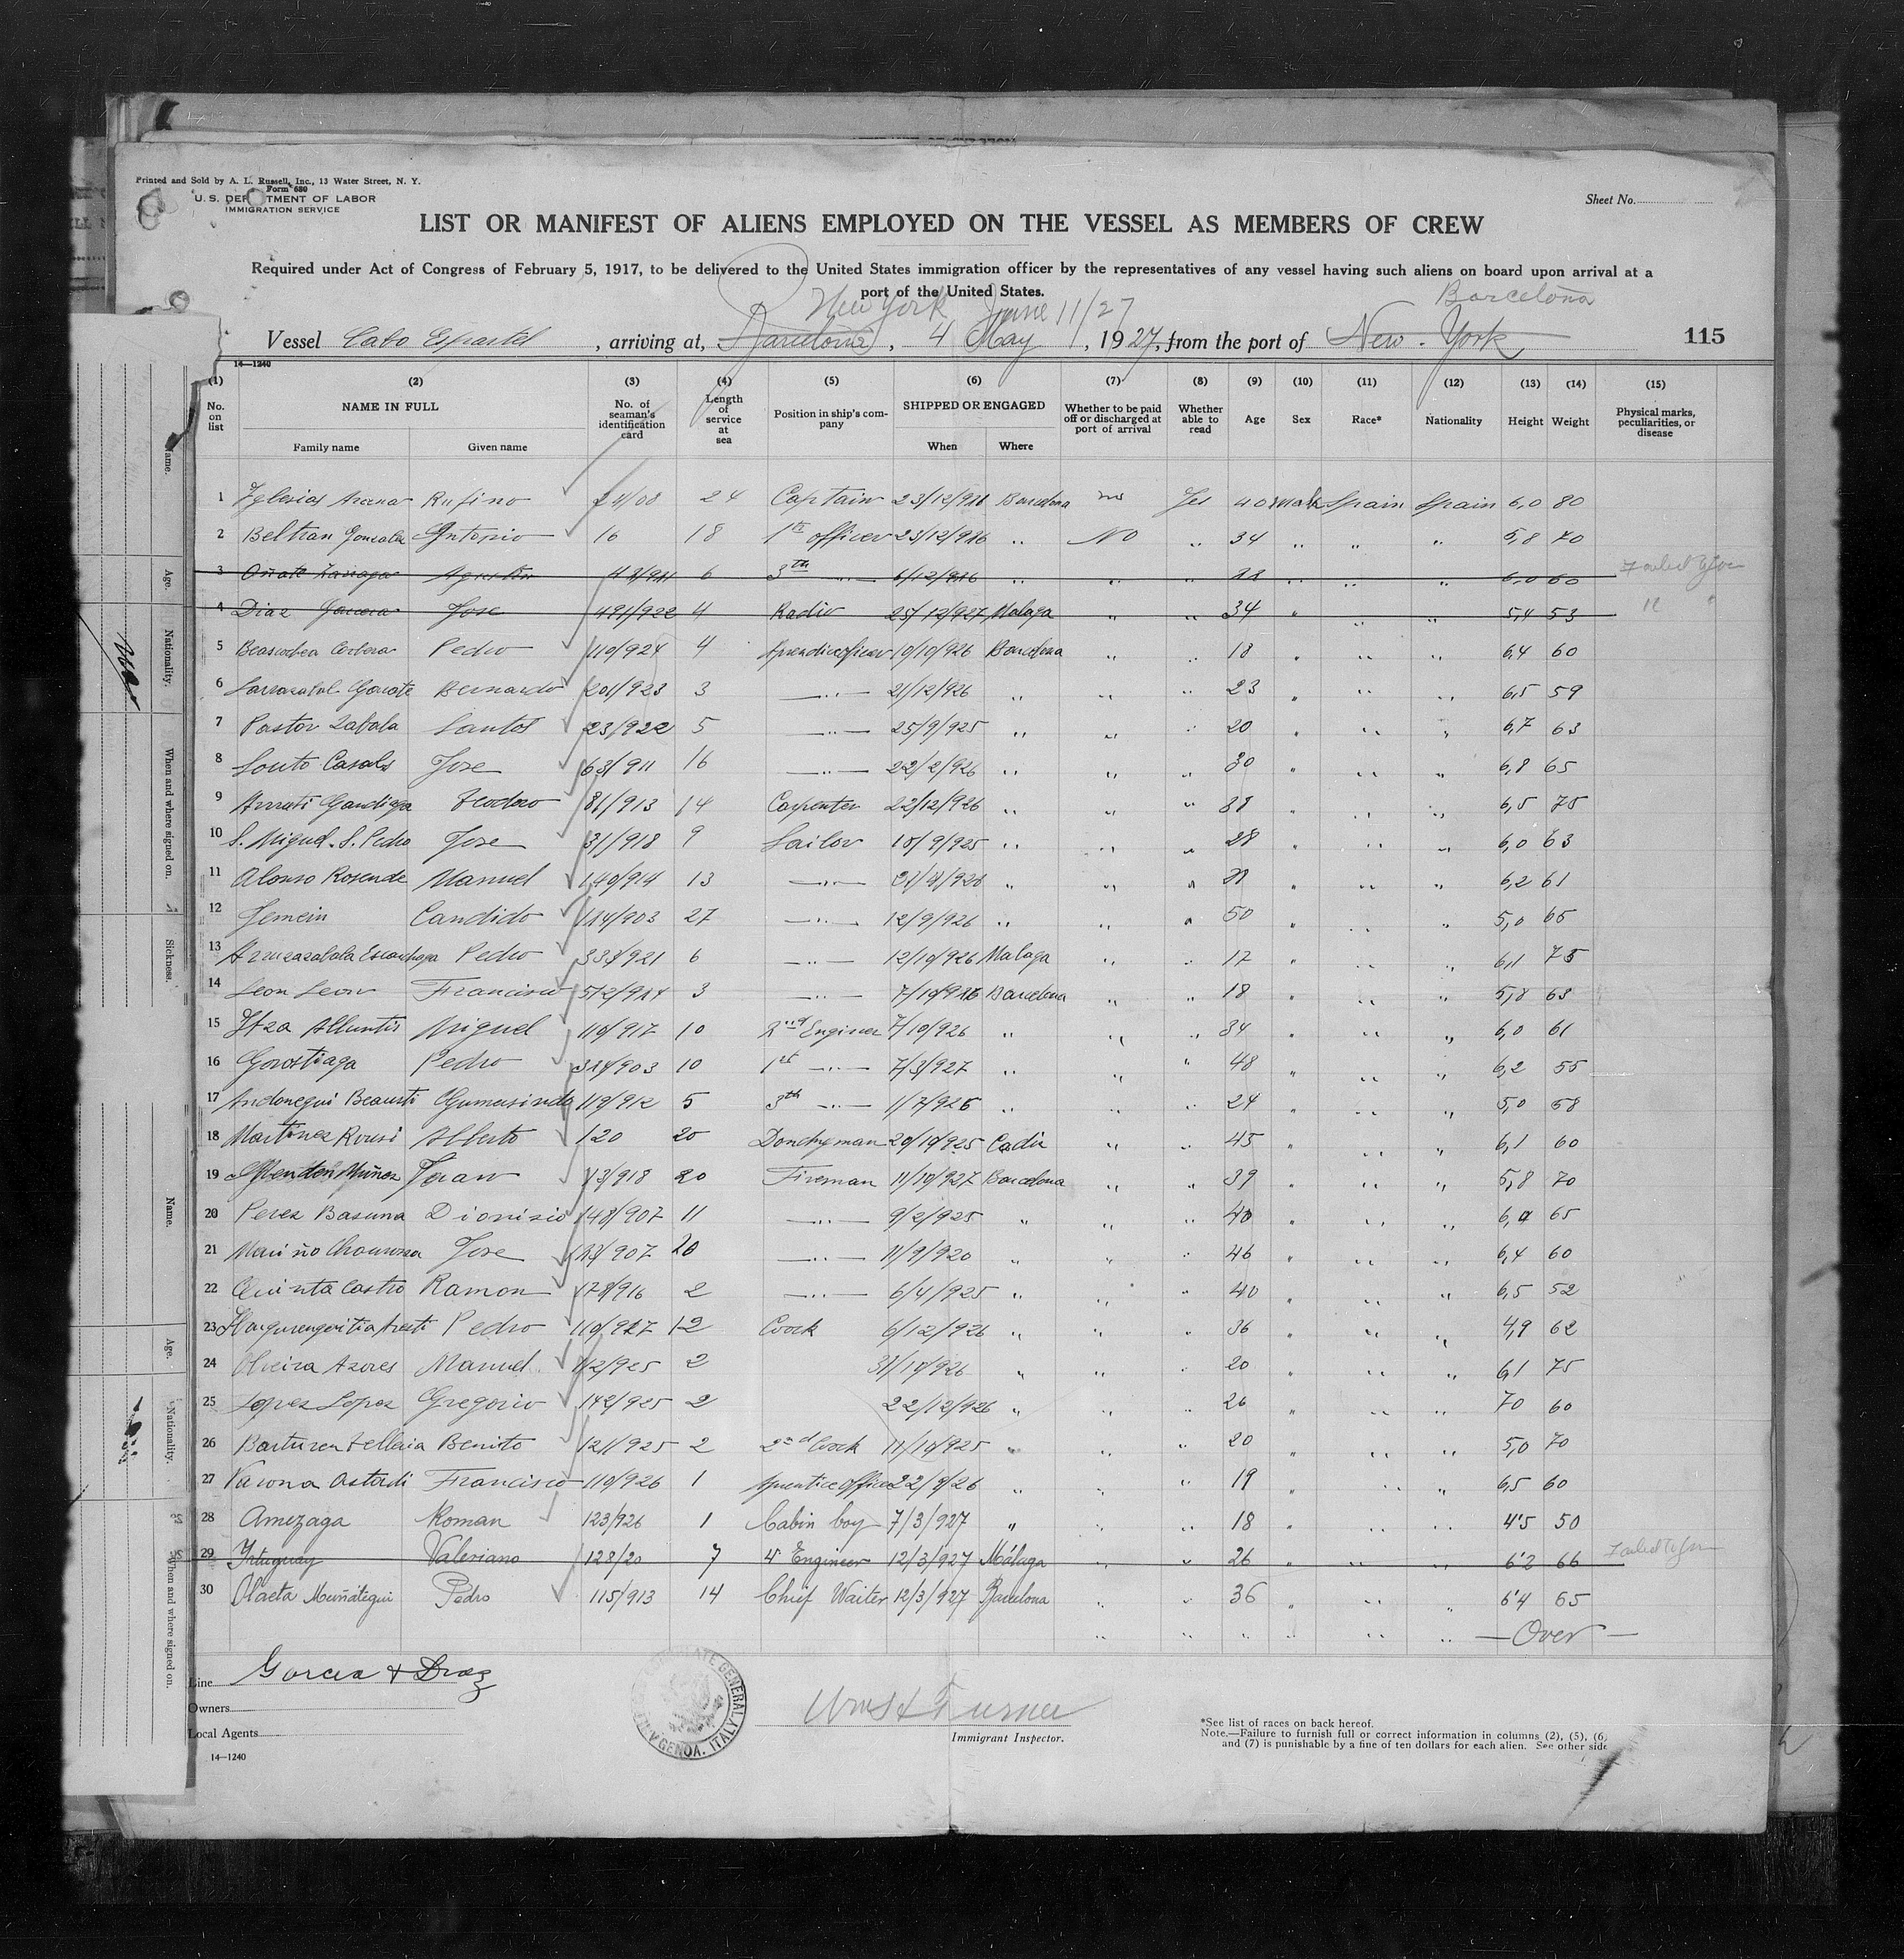 Printed and Sold by A. L. Russell, Inc., 13 Water Street, N. Y.
Form 680
U. S. DEPARTMENT OF LABOR
IMMIGRATION SERVICE
Sheet No.
LIST OR MANIFEST OF ALIENS EMPLOYED ON THE VESSEL AS MEMBERS OF CREW
Required under Act of Congress of February 5, 1917, to be delivered to the United States immigration officer by the representatives of any vessel having such aliens on board upon arrival at a
port of the United States.
New York June 11/27 Barcelona
Vessel Cabo Espartel, arriving at, Barcelona, 4 May, 1927, from the port of New-York 115
14—1240
(1) (2) (3) (4) (5) (6) (7) (8) (9) (10) (11) (12) (13) (14) (15)
No. on list NAME IN FULL Family name Given name No. of seaman's identification card Length of service at sea Position in ship's company SHIPPED OR ENGAGED When Where Whether to be paid off or discharged at port of arrival Whether able to read Age Sex Race* Nationality Height Weight Physical marks, peculiarities, or disease
1 Iglesias Rufino 24 Captain 23/12/916 Barcelona no Yes 40 Male Spain Spain 6,0 80
2 Beltran Gonzalez Antonio 16 18 1st officer 23/12/916 " NO " 34 " " " 5,8 70
3 Oñate 6 3th " 6/12/916 " " " " " " 6,0 60 Failed to Join
4 Diaz Jose 491/922 4 Radio 25/12/927 Malaga " " 34 " " " 5,4 53 " "
5 Pedro 110/924 4 Barcelona " " 18 " " " 6,4 60
6 Bernardo 201/923 3 " 21/12/926 " " " 23 " " " 6,5 59
7 Pastor Zabala Santos 23/922 5 " 25/9/925 " " " 20 " " " 6,7 63
8 Souto Casals Jose 63/911 16 " 22/2/926 " " " 30 " " " 6,8 65
9 Teodoro 81/913 14 Carpenter 22/12/926 " " " 38 " " " 6,5 75
10 S. Miguel. S. Pedro Jose 31/918 9 Sailor 10/9/925 " " " 28 " " " 6,0 63
11 Alonso Rosende Manuel 140/914 13 " " " " " " " 6,2 61
12 Jemein Candido 114/903 27 " 12/9/926 " " " 50 " " " 5,0 65
13 Pedro 333/921 6 " 12/10/926 Malaga " " 17 " " " 6,1 75
14 Leon Leon Francisco 3 " Barcelona " " 18 " " " 5,8 63
15 Miguel 110/917 10 2nd Engineer 7/10/926 " " " 34 " " " 6,0 61
16 Gorostiaga Pedro 314/903 10 1st " 7/3/927 " " " 48 " " " 6,2 55
17 Andonegui Gumersindo 119/912 5 3th " 1/7/926 " " " 24 " " " 5,0 58
18 Martinez Alberto 120 20 Donchyman 20/10/925 Cadiz " " 45 " " " 6,1 60
19 Rendon Muñoz Juan 13/918 20 Fireman 11/10/927 Barcelona " " 39 " " " 5,8 70
20 Perez Basuna Dionisio 148/907 11 " 9/2/925 " " " 40 " " " 65
21 Jose 20 " 11/9/920 " " " 46 " " " 6,4 60
22 Quinta Castro Ramon 178/916 2 " 6/4/925 " " " 40 " " " 6,5 52
23 Pedro 12 Coock 6/12/926 " " " 36 " " " 4,9 62
24 Oliveira Azores Manuel 112/925 2 31/10/926 " " " 20 " " " 6,1 75
25 Lopez Lopez Gregorio 142/925 2 22/12/926 " " " 26 " " " 70 60
26 Barturen Telleria Benito 121/925 2 2nd Coock 11/10/925 " " " 20 " " " 5,0 70
27 Varona Astardi Francisco 110/926 1 Aprentice officer " " " 19 " " " 6,5 60
28 Amezaga Roman 123/926 1 Cabin boy 7/3/927 " " " 18 " " " 4'5 50
29 Yrtuguay Valeriano 128/20 7 4º Engineer 12/3/927 Málaga " " 26 " " " 6'2 66 Failed to Join
30 Olaeta Muñategui Pedro 115/913 14 Chief Waiter 12/3/927 Barcelona " " 36 " " " 6'4 65
" " " " " " — Over —
Line Garcia & Diaz
Owners
Local Agents
14—1240
CONSULATE GENERAL
GENOA. ITALY
Immigrant Inspector.
*See list of races on back hereof.
Note.—Failure to furnish full or correct information in columns (2), (5), (6)
and (7) is punishable by a fine of ten dollars for each alien. See other side
Name.
Age.
Nationality.
When and where signed on.
Sickness.
Name.
Age.
Nationality.
When and where signed on.